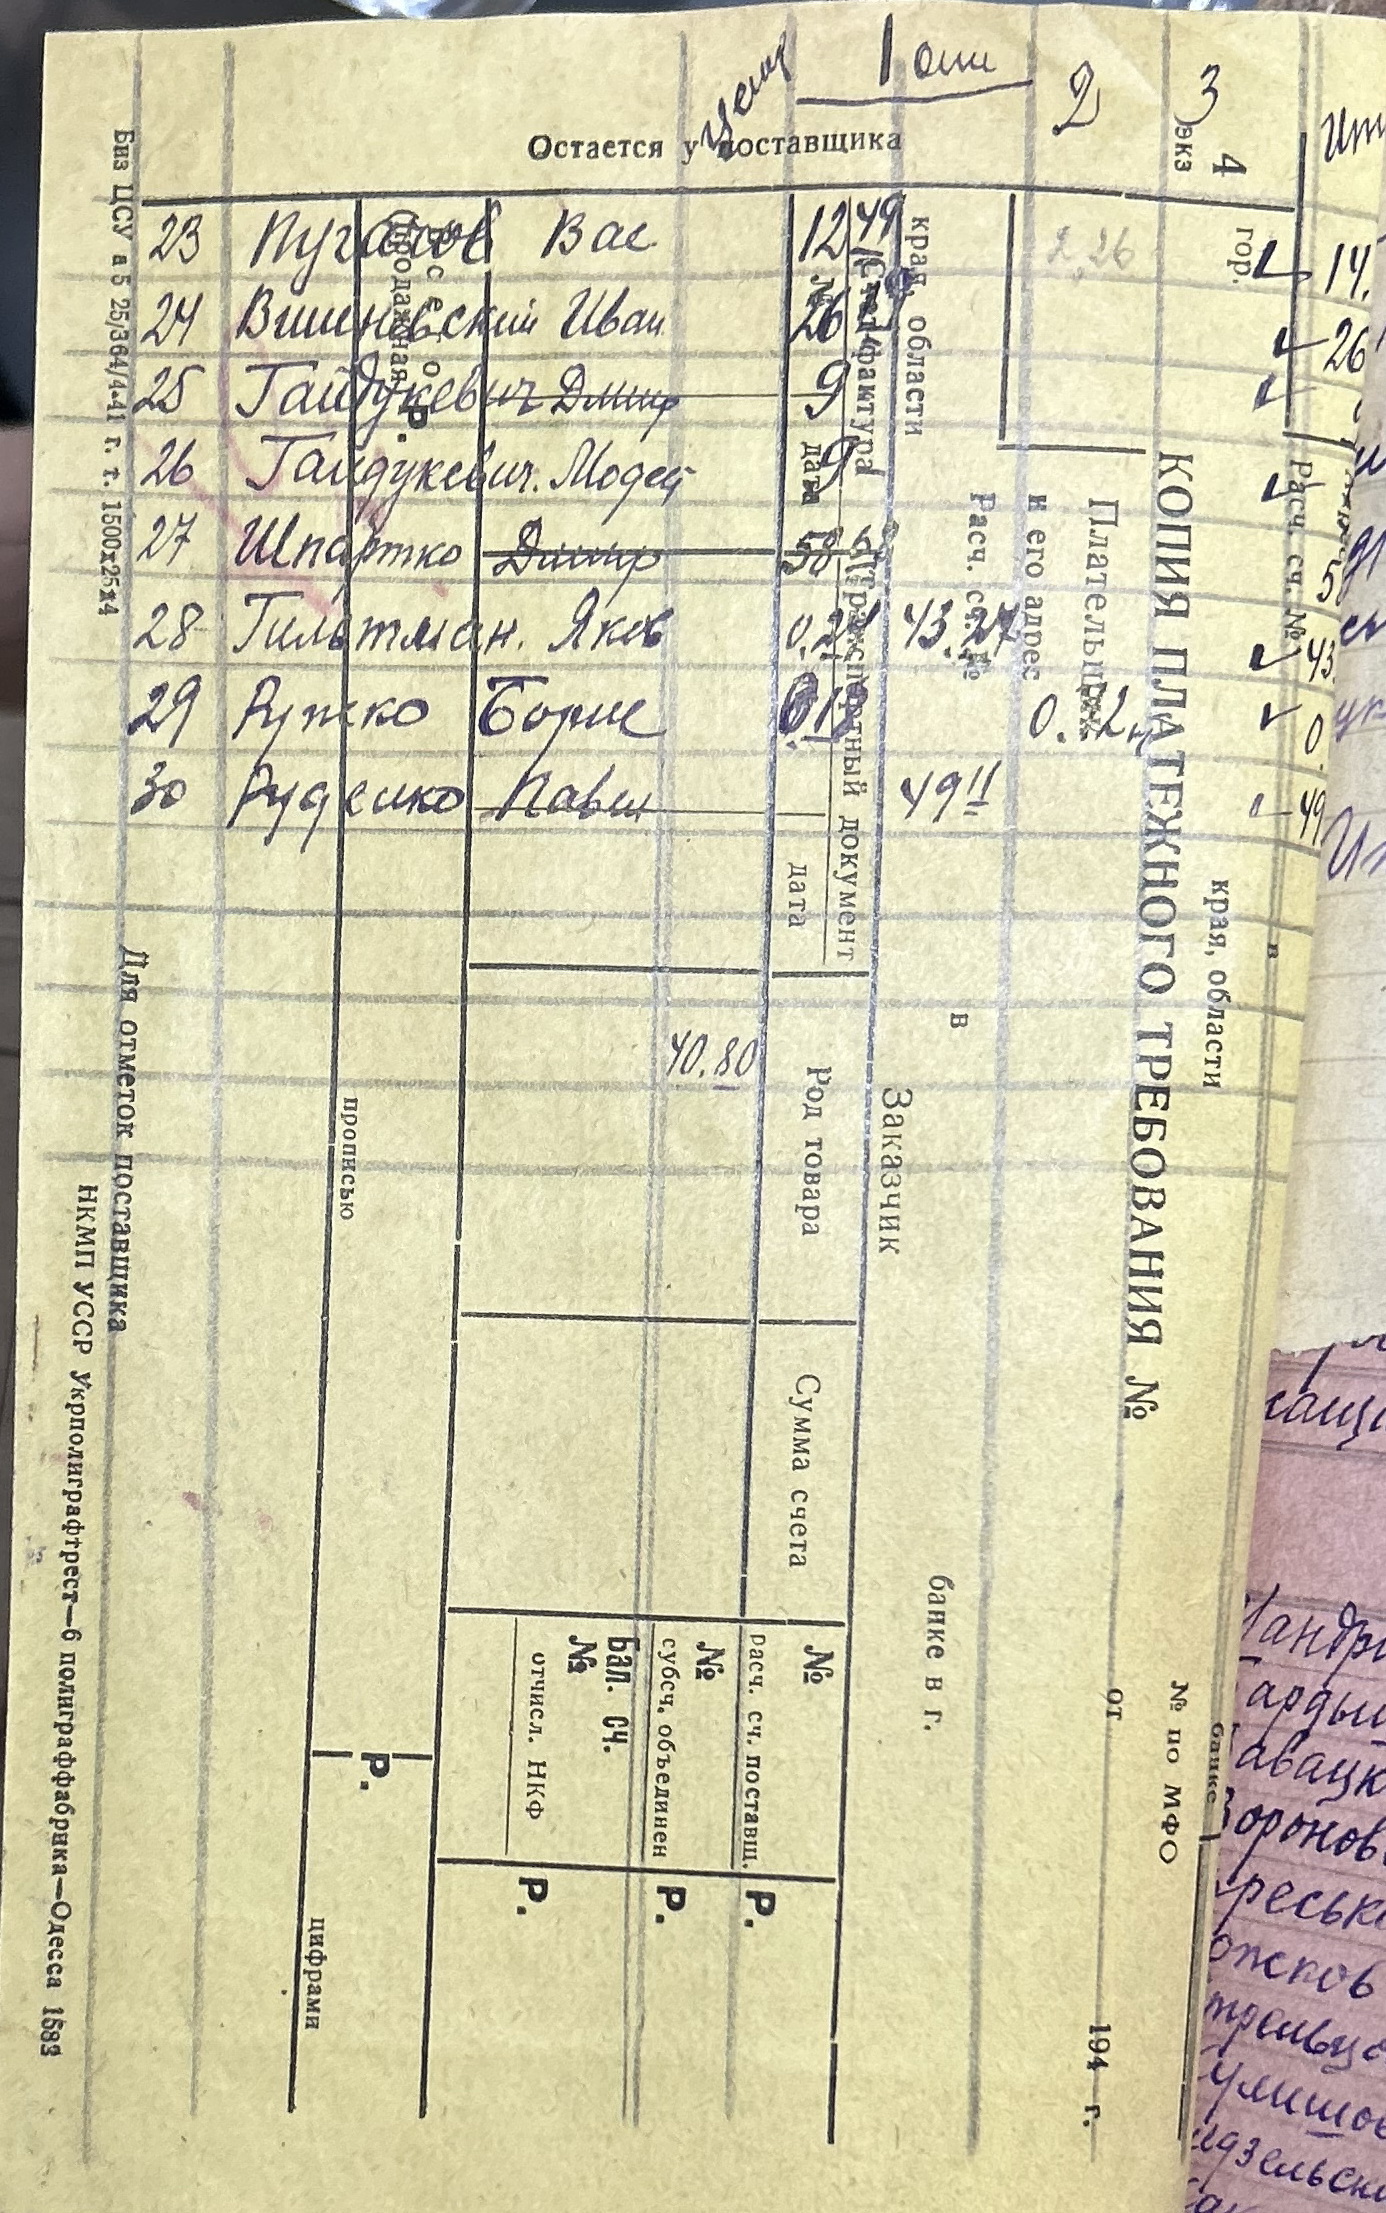 1 оп 2 3
Остается у поставщика
4 экз
23 Пугачов Вас 12 49
24 Вишневский Иван 26
25 Гайдукевич Дмитр 9
26 Гайдукевич. Модест 9
27 Шпартко Дмитр 58
28 Гильтман. Яков 0.21 43.27
29 Рупско Борис 0.18 0.12
30 Руденко Павел 49 11
40.80
2,26
гор.
Расч. сч. №
в
края, области
банке
№ по МФО
КОПИЯ ПЛАТЕЖНОГО ТРЕБОВАНИЯ №
от
194 г.
Плательщик
и его адрес
Расч. сч. №
в
банке в г.
края, области
Заказчик
Счет-фактура
№
дата
Транспортный документ
дата
Род товара
Сумма счета
№
расч. сч. поставщ.
Р.
№
субсч. объединен
Р.
Бал. сч.
№
отчисл. НКФ
Р.
Всего
Продажная
Р.
прописью
Р.
цифрами
Для отметок поставщика
Биз ЦСУ а 5 25/364/4-41 г. т. 1500х25х4
НКМП УССР Укрполиграфтрест—6 полиграффабрика—Одесса 1583